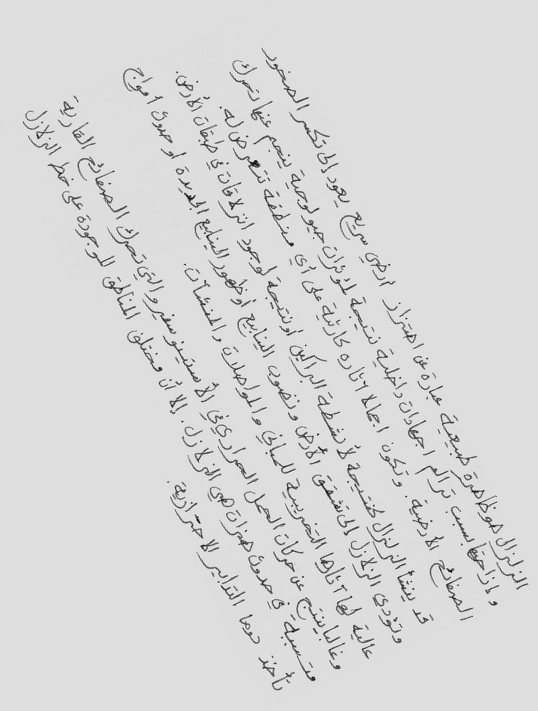 الزلزال هو ظاهرة طبيعية عبارة عن اهتزاز أرضي سريع يعود إلى تكسر الصخور
وإزاحتها بسبب تراكم اجهادات داخلية نتيجة لمؤثرات جيولوجية ينجم عنها تحرك
الصفائح الأرضية. وتكون اجمالا آثاره كارثية على أي منطقة تتعرض له.
قد ينشأ الزلزال كنتيجة لأنشطة البراكين أو نتيجة لوجود انزلاقات في طبقات الأرض.
وتؤدي الزلازل إلى تشقق الأرض ونضوب الينابيع أو ظهور الينابيع الجديدة أو حدوث أمواج
عالية لها آثارها التخريبية للمباني والمواصلات والمنشآت.
وغالبا ينتج عن حركات الحمل الحراري في الأستينوسفير والتي تحرك الصفائح القارية
متسببة في حدوث هزات هي الزلازل. إلا أن مختلف المناطق الموجودة على خط الزلازل
تأخذ دوما التدابير الاحترازية.